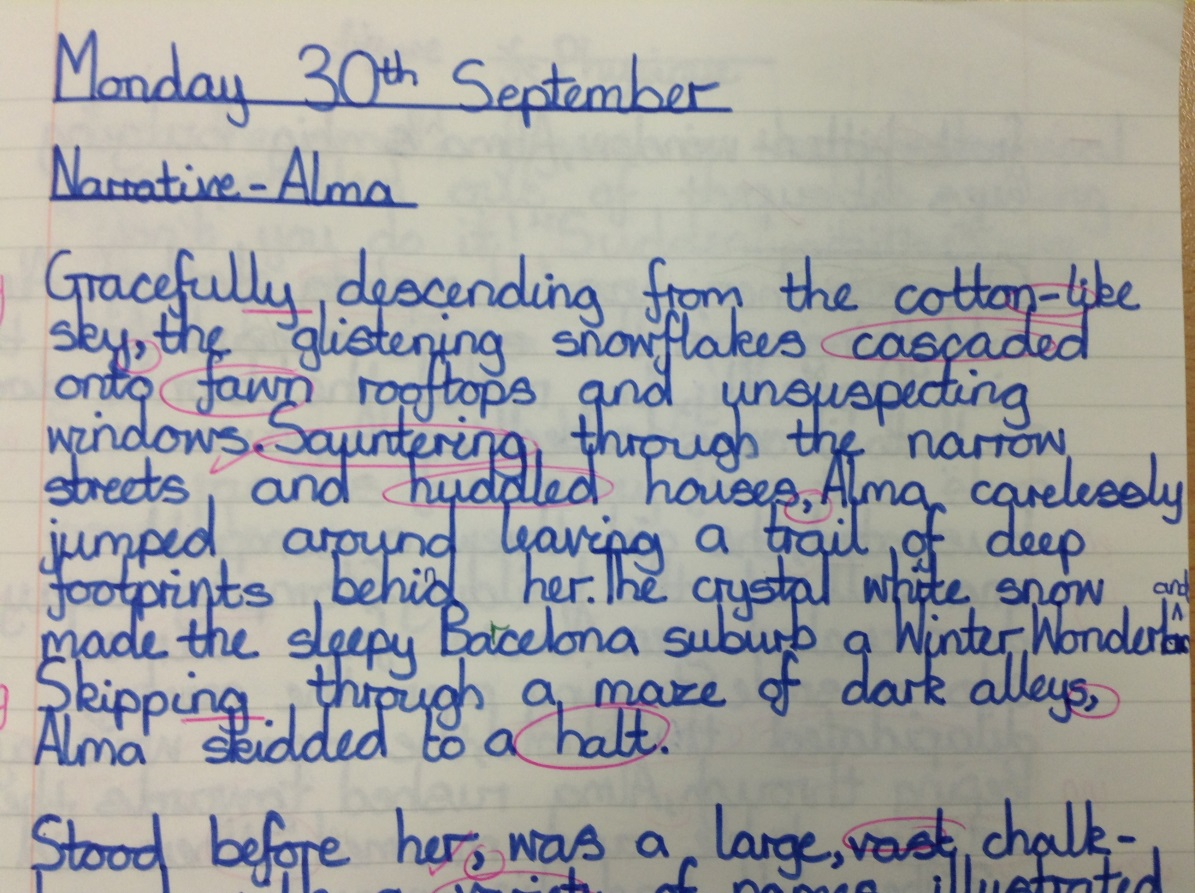 Monday 30th September
Narrative - Alma
Gracefully descending from the cotton-like
sky, the glistening snowflakes cascaded
onto fawn rooftops and unsuspecting
windows. Sauntering through the narrow
streets and huddled houses, Alma carelessly
jumped around leaving a trail of deep
footprints behind her. The crystal white snow
made the sleepy Barcelona suburb a Winter Wonderland
Skipping through a maze of dark alleys,
Alma skidded to a halt.
Stood before her, was a large, vast chalk-
variety of names illustrated